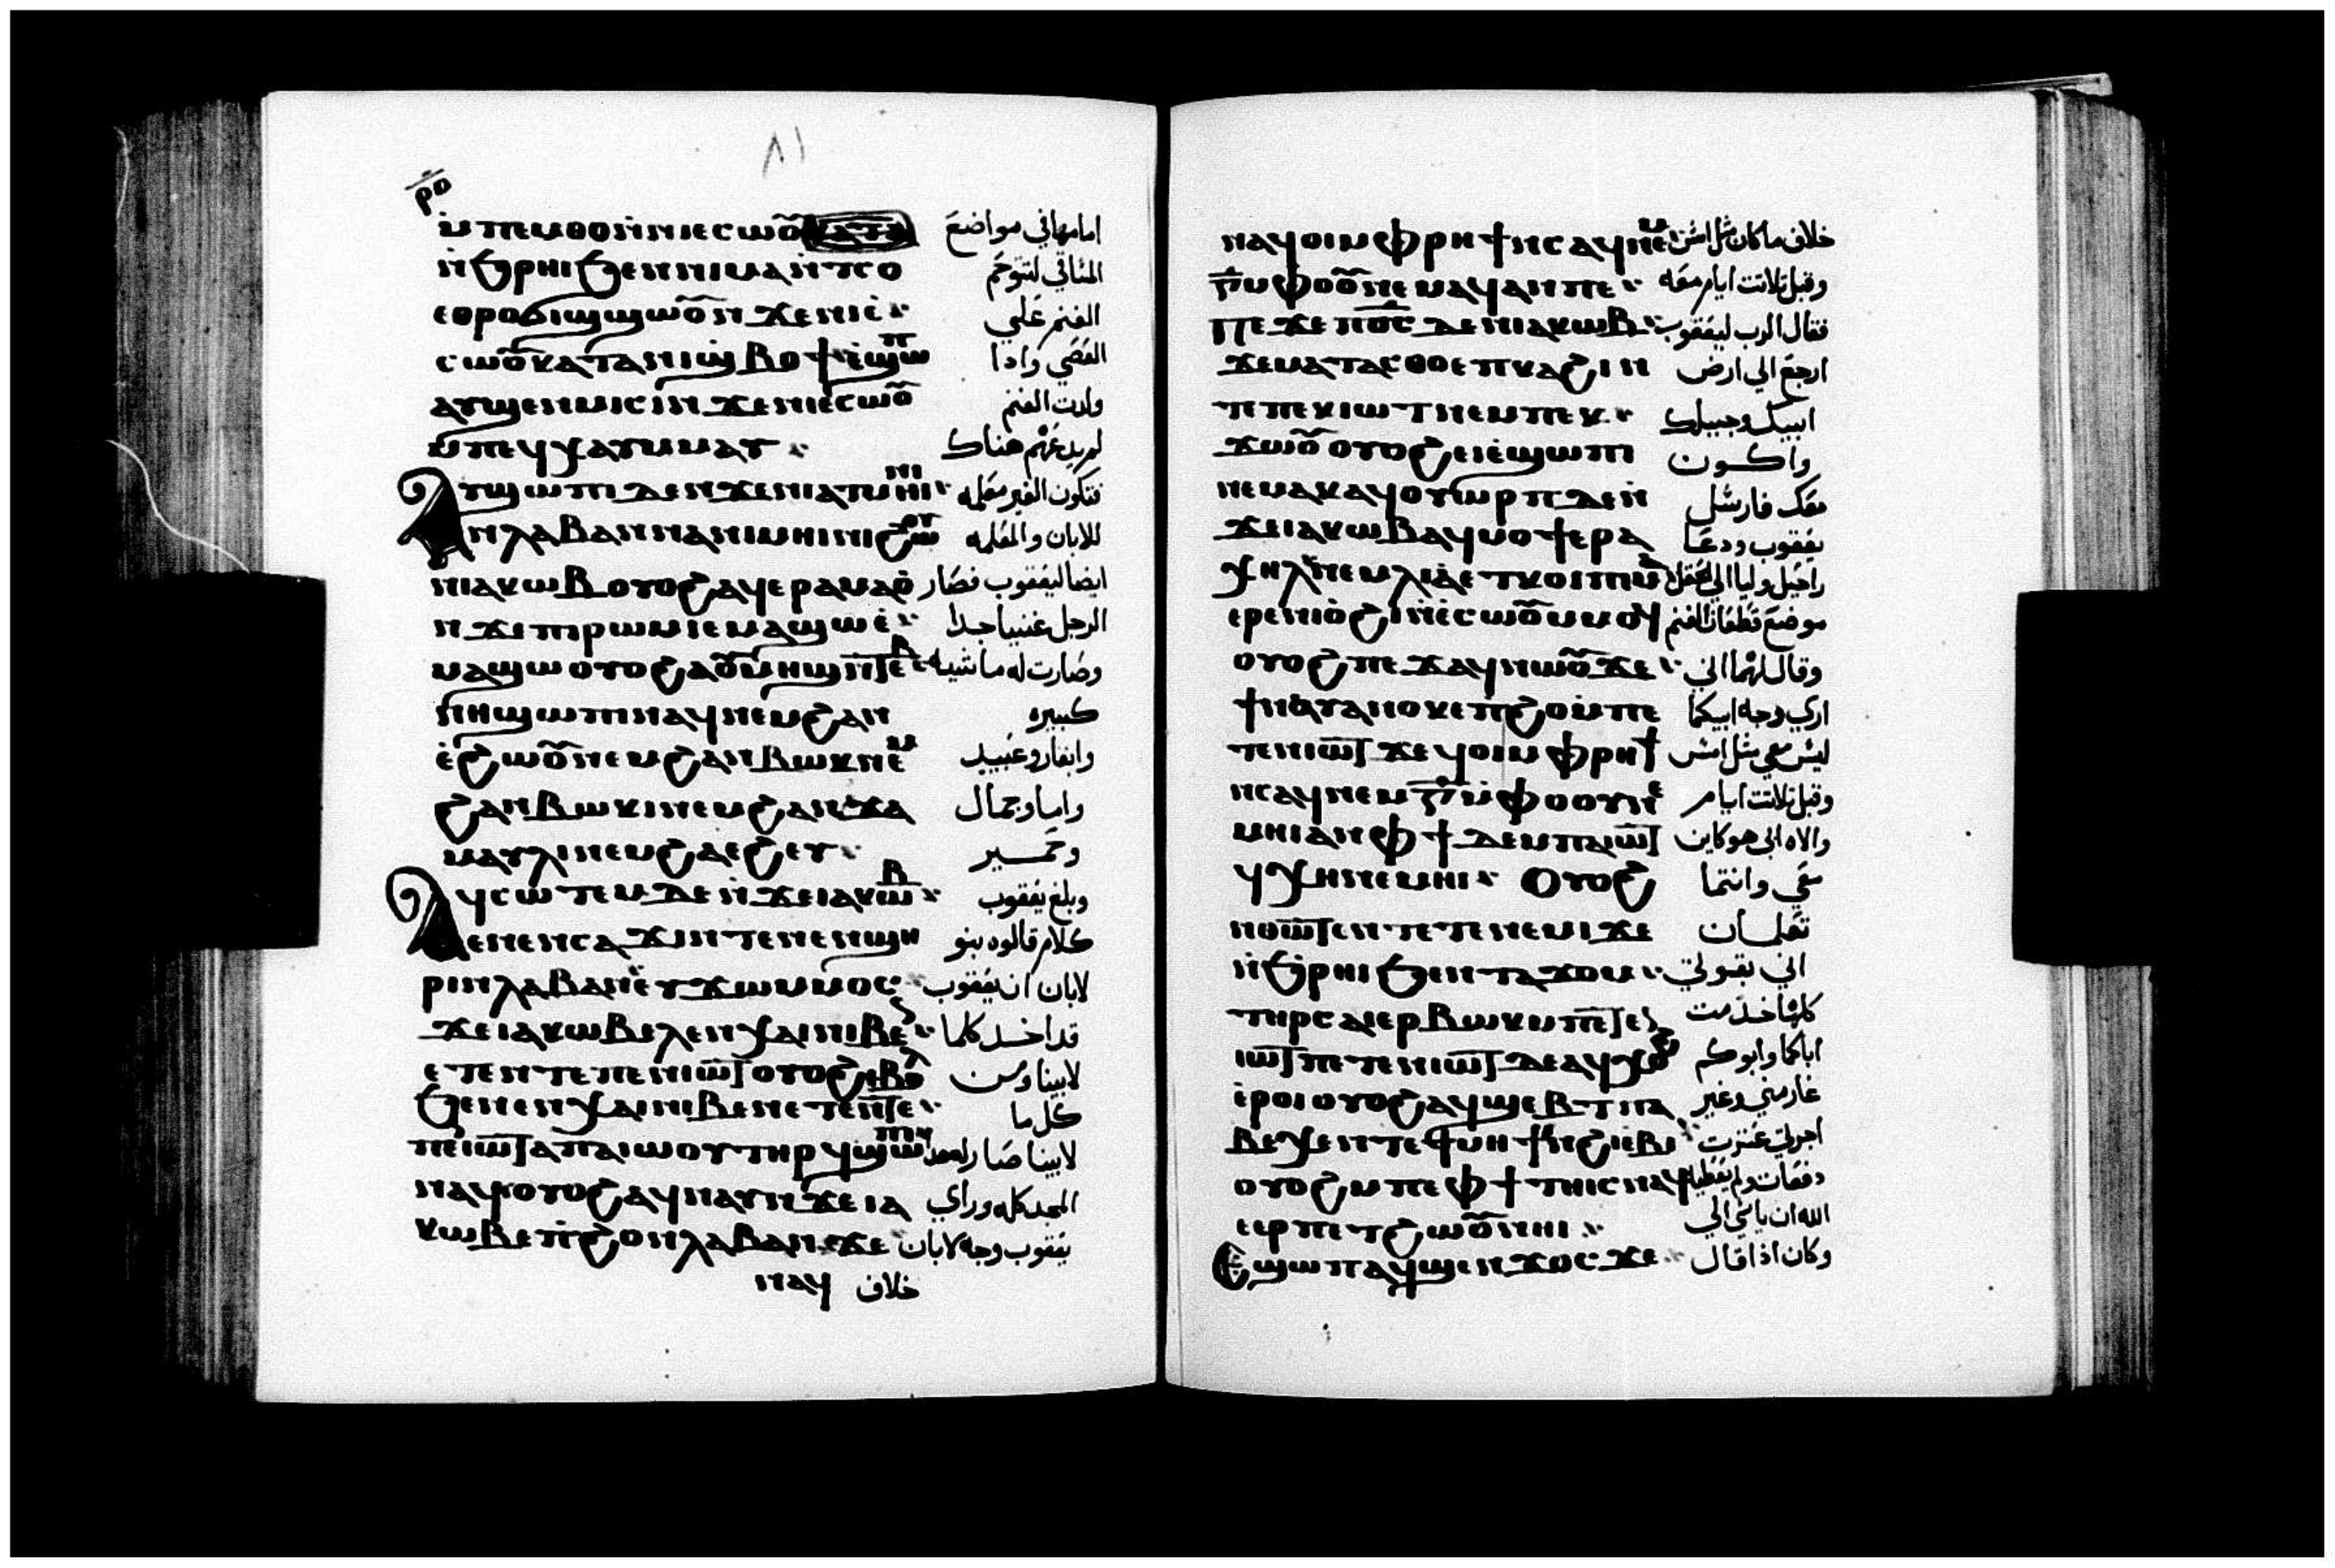 ٨١
ⲣⲟ
ⲙ̇ⲡⲉⲙⲑⲟ ⲛ̇ⲛⲓⲉⲥⲱⲟ̅ امامها في مواضع
ⲛ̇ϧⲣⲏⲓ ϧⲉⲛ ⲛⲓⲙⲁⲛ̇ⲧⲥⲟ المساقي لتتوحم
ⲉⲑⲣⲟⲩϭⲓϣϣⲱⲟ̅ ⲛ̇ϫⲉ ⲛⲓⲉ̇ الغنم علي
ⲥⲱⲟ̅ ⲕⲁⲧⲁ ⲛⲓϣ̇ⲃⲟϯ ⲉ̇ϣⲱⲡ العصي واذا
ⲁⲩϣⲉⲛⲙⲓⲥⲓ ⲛ̇ϫⲉ ⲛⲓⲉ̇ⲥⲱⲟ̅ ولدت الغنم
ⲙ̇ⲡⲉϥⲭⲁⲩ ⲙ̇ⲙⲁⲩ لم يدعهم هناك
ⲁⲩϣⲱⲡⲓ ⲇⲉ ⲛ̇ϫⲉ ⲛⲓⲁⲧⲙⲏⲓⲛⲓ فتكون الغير معلمه
ⲛ̇ⲗⲁⲃⲁⲛ ⲛⲁⲛⲓⲙⲏⲓⲛⲓ ϩⲱⲟⲩ للابان والمعلمه
ⲛⲓⲁⲕⲱⲃ ⲟⲩⲟϩ ⲁϥⲉⲣⲁⲙⲁⲟ̇ ايضا ليعقوب فصار
ⲛ̇ϫⲉ ⲡⲓⲣⲱⲙⲓ ⲉⲙⲁϣⲱ ⲉ̇ الرجل غنيا جدا
ⲙⲁϣⲱ ⲟⲩⲟϩ ⲁⲟ̅ⲙⲏϣ ⲛ̇ⲧⲉⲃ وصارت له ماشيه
ⲛⲏ ϣⲱⲡⲓ ⲛⲁϥ ⲛⲉⲙ ϩⲁⲛ كبيره
ⲉ̇ϩⲱⲟ̅ ⲛⲉⲙ ϩⲁⲛⲃⲱⲕ ⲛⲉⲙ وابقار وعبيد
ϩⲁⲛⲃⲱⲕⲓ ⲛⲉⲙ ϩⲁⲛϫⲁ واما وجمال
ⲙⲁⲩⲗⲓ ⲛⲉⲙ ϩⲁⲉϩⲉⲩ وحمير
ⲁϥⲥⲱⲧⲉⲙ ⲇⲉ ⲛ̇ϫⲉ ⲓⲁⲕⲱⲃ وبلغ يعقوب
ⲉⲛⲉⲛⲥⲁϫⲓ ⲛ̇ⲧⲉ ⲛⲉⲛϣⲏ كلام قالوه بنو
ⲣⲓ ⲛ̇ⲗⲁⲃⲁⲛ ⲉ̇ⲩϫⲱ ⲙ̇ⲙⲟⲥ لابان ان يعقوب
ϫⲉ ⲓⲁⲕⲱⲃ ⲉⲗ ⲉⲛⲭⲁⲓ ⲛⲓⲃⲉⲛ قد اخد كلما
ⲉⲧⲉⲛⲧⲉ ⲡⲉⲛⲓⲱⲧ ⲟⲩⲟϩ ⲉⲃⲟⲗ لابينا ومن
ϧⲉⲛ ⲉⲛⲭⲁⲓ ⲛⲓⲃⲉⲛ ⲉⲧⲉⲛⲧⲉ كل ما
ⲡⲉⲛⲓⲱⲧ ⲁ ⲡⲁⲓⲱⲟⲩ ⲧⲏⲣϥ ϣⲱⲡⲓ لابينا صار له هذا
ⲛⲁϥ ⲟⲩⲟϩ ⲁϥⲛⲁⲩ ⲛ̇ϫⲉ ⲓⲁ المجد كله وراي
ⲕⲱⲃ ⲉⲡϩⲟ ⲛ̇ⲗⲁⲃⲁⲛ ϫⲉ يعقوب وجه لابان
ⲛⲁϥ خلاف
ⲛⲁϥⲟⲓ ⲙ̇ⲫⲣⲏϯ ⲛ̇ⲥⲁϥ ⲛⲉⲙ خلاف ما كان مثل امس
ⲅ̅ ⲙ̇ⲫⲟⲟ̅ ⲛⲉⲙⲁϥ ⲁⲛ ⲡⲉ وقبل تلاتت ايام معه
ⲡⲉϫⲉ ⲡⲟ̅ⲥ̅ ⲇⲉ ⲛⲓⲁⲕⲱⲃ فقال الرب ليعقوب
ϫⲉ ⲙⲁⲧⲁⲥⲑⲟ ⲉⲡⲕⲁϩⲓ ⲛ ارجع الي ارض
ⲧⲉ ⲡⲉⲕⲓⲱⲧ ⲛⲉⲙ ⲡⲉⲕ ابيك وجيلك
ϫⲱⲟ̅ ⲟⲩⲟϩ ⲉⲓⲉ̇ϣⲱⲡⲓ واكون
ⲛⲉⲙⲁⲕ ⲁϥⲟⲩⲱⲣⲡ ⲇⲉ ⲛ̇ معك فارسل
ϫⲉ ⲓⲁⲕⲱⲃ ⲁϥⲙⲟⲩϯ ⲉⲣⲁ يعقوب ودعا
ⲭⲏⲗ ⲛⲉⲙ ⲗⲓⲁ ⲉⲧⲕⲟⲓ ⲡⲙⲁ راحيل وليا الي الحقل
ⲉⲣⲉ ⲛⲓⲟ̇ϩⲓ ⲛ̇ⲉ̇ⲥⲱⲟ̅ ⲙ̇ⲙⲟϥ موضع قطعان الغنم
ⲟⲩⲟϩ ⲡⲉϫⲁϥ ⲛⲱⲟ̅ ϫⲉ وقال لهما اني
ϯⲛⲁⲩ ⲁⲛⲟⲕ ⲉⲡϩⲟ ⲙ̇ⲡⲉ اري وجه ابيكما
ⲧⲉⲛⲓⲱⲧ ϫⲉ ϥⲟⲓ ⲙ̇ⲫⲣⲏϯ ليس معي مثل امس
ⲛ̇ⲥⲁϥ ⲛⲉⲙ ⲅ̅ ⲙ̇ⲫⲟⲟⲩ ⲛⲉ وقبل تلاتت ايام
ⲙⲏⲓ ⲁⲛ ⲫϯ ⲇⲉ ⲙ̇ⲡⲁⲓⲱⲧ والاه ابي هو كاين
ϥⲭⲏ ⲛⲉⲙⲏⲓ ⲟⲩⲟϩ معي وانتما
ⲛⲑⲱⲧⲉⲛ ⲧⲉⲧⲉⲛⲉⲙⲓ ϫⲉ تعلمان
ⲛ̇ϧⲣⲏⲓ ϧⲉⲛ ⲧⲁϫⲟⲙ اني بقوتي
ⲧⲏⲣⲥ ⲁⲓⲉⲣⲃⲱⲕ ⲙ̇ⲡⲉⲧⲉⲛ كلها خدمت
ⲓⲱⲧ ⲡⲉⲧⲉⲛⲓⲱⲧ ⲇⲉ ⲁϥⲭⲟϩ اباكما وابوكم
ⲉ̇ⲣⲟⲓ ⲟⲩⲟϩ ⲁϥϣⲉⲃⲧ ⲡⲁ غار مني وغير
ⲃⲉⲭⲉ ⲛ̇ⲧⲉ ϯⲙⲏϯ ⲛ̇ϩⲓⲉⲃⲓ اجرتي عشرت
ⲟⲩⲟϩ ⲙ̇ⲡⲉ ⲫϯ ⲧⲏⲓⲥ ⲛⲁϥ دفعات ولم يعطيه
ⲉⲉⲣⲡⲉⲧϩⲱⲟ̅ ⲛⲏⲓ الله ان ياسي الي
ⲉϣⲱⲡ ⲁϥϣⲉⲛϫⲟⲥ ϫⲉ وكان اذا قال